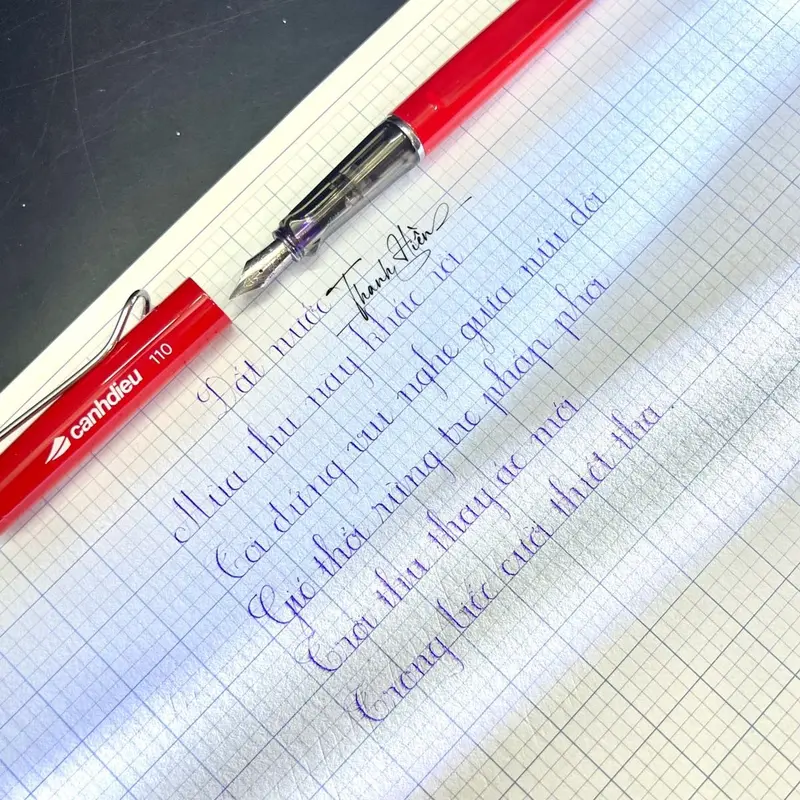 canhdieu 110
Thanh Hiền
Đất nước
Mùa thu nay khác rồi
Tôi đứng vui nghe giữa núi đồi
Gió thổi rừng tre phấp phới
Trời thu thay áo mới
Trong biếc cười thiết tha.